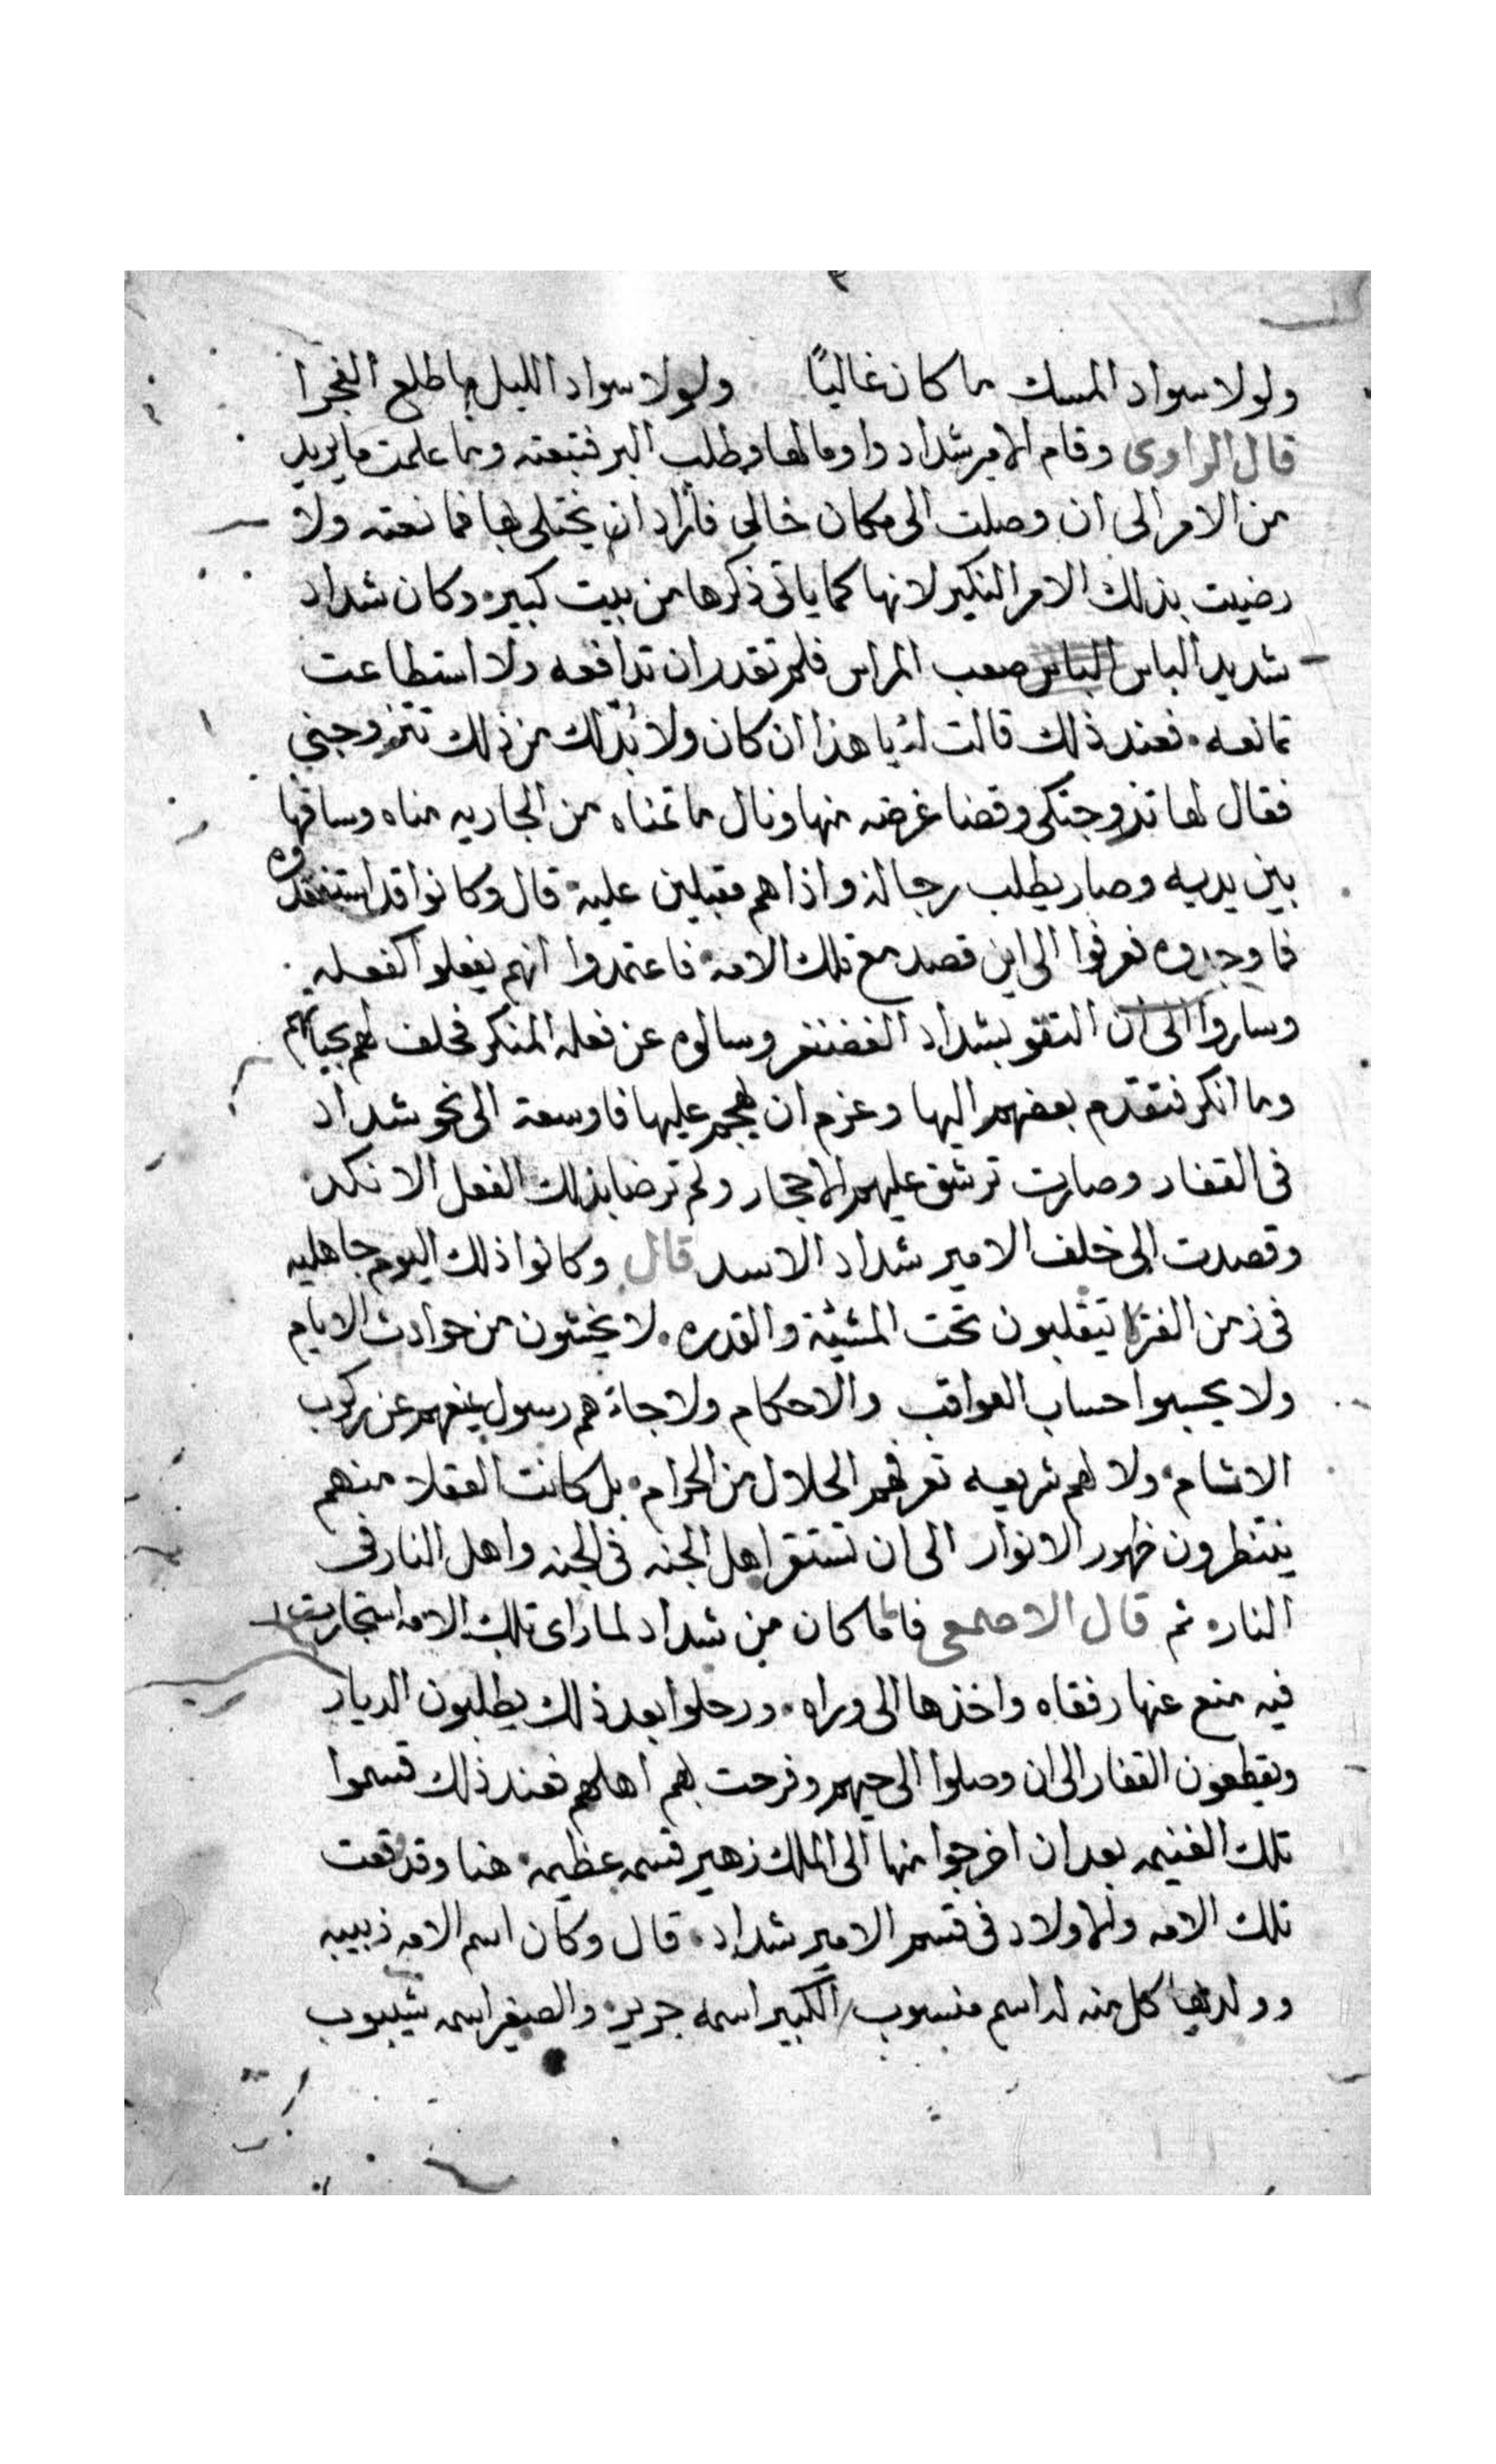 ولولا سواد المسك ما كان غاليًا ولولا سواد الليل ما طلع الفجرا
قال الراوى وقام الامير شداد واوما لها وطلب البر فتبعته وما علمت ما يريد
من الامر الى ان وصلت الى مكان خالى فأراد ان يختلى بها فمانعته ولا
رضيت بذلك الامر النكير لانها كما ياتى ذكرها من بيت كبير وكان شداد
شديد الباس الباس صعب المراس فلم تقدر ان تدافعه ولا استطاعت
تمانعه فعند ذلك قالت له يا هذا ان كان ولا بُدّ لك من ذلك تتزوجنى
فقال لها تزوجتكى وقضا غرضه منها ونال ما تمناه من الجاريه مناه وساقها
بين يديه وصار يطلب رجاله واذا هم مقبلين عليه قال وكانوا قد استفقدوه
فما وجدوه فعرفوا الى اين قصد مع تلك الامه فاعتمدوا انهم يفعلوا كفعله
وساروا الى ان التقو بشداد الغضنفر وسالوه عن فعله المنكر فحلف لهم بحياتهم
وما انكر فتقدم بعضهم اليها وعزم ان يهجم عليها فاوسعة الى نحو شداد
فى القفار وصارت ترشق عليهم الاحجار ولم ترضا بذلك الفعل الانكد
وقصدت الى خلف الامير شداد الاسد قال وكانوا ذلك اليوم جاهليه
فى زمن الفترا يتقلبون تحت المشيّة والقدره لا يخشون من حوادث الايام
ولا يحسبوا حساب العواقب والاحكام ولا جاءهم رسول يمنعهم عن ركوب
الاثام ولا لهم شريعه تعرفهم الحلال من الحرام بل كانت العقلا منهم
ينتظرون ظهور الانوار الى ان تستقر اهل الجنه فى الجنه واهل النار فى
النار ثم قال الاصمعى فاما كان من شداد لما راى تلك الامه استجارت
فيه منع عنها رفقاه واخذها الى وراه ورحلوا بعد ذلك يطلبون الديار
ويقطعون القفار الى ان وصلوا الى حيهم وفرحت بهم اهلهم فعند ذلك قسموا
تلك الغنيمه بعد ان اخرجوا منها الى الملك زهير قسمه عظيمه هذا وقد وقعت
تلك الامه والاولاد فى قسم الامير شداد قال وكان اسم الامه زبيبه
وولديها كل منه له اسم منسوب الكبير اسمه جرير والصغير اسمه شيبوب